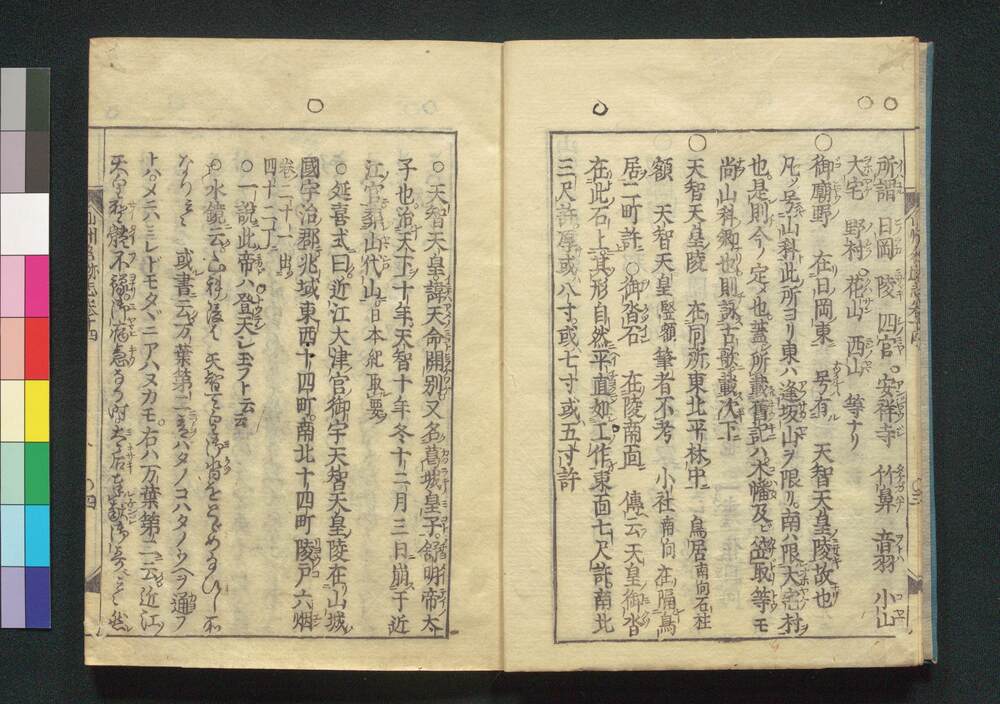 所謂 日岡 陵 四宮 安祥寺 竹鼻 音羽 小山
大宅 野村 花山 西山 等ナリ
○御廟野 在日岡東 号有 天智天皇陵故也
凡ソ号山科此所ヨリ東ハ逢坂山ヲ限リ南ハ限大宅村
也是則今ノ定メ也蓋所載舊記ハ木幡及ヒ笠取等モ
尚山科郷也則詠古歌載次下
○天智天皇陵 在同所東北平林中 鳥居南向石柱
額 天智天皇 竪額 筆者不考 小社南向在鳥
居二町許 ○御沓石 在陵南面 傳云天皇御沓
在此石上其形自然平直如工作東面七尺許南北
三尺許厚或八寸或七寸或五寸許
○天智天皇諱天命開別又名葛城皇子舒明帝太
子也治天下十年天智十年冬十二月三日崩于近
江宮葬山代山 日本紀取要
○延喜式曰近江大津宮御宇天智天皇陵在山城
國宇治郡兆域東西十四町南北十四町陵戸六烟
巻二十一出
四十二丁
○一説此帝ハ登天シ玉フト云云
○水鏡云山科
或書云万葉第二
トハメニハミレドモタヾニアハヌカモ右ハ万葉第二云近江
天皇聖體不豫御病急
山州名跡志巻十四
○三
○四